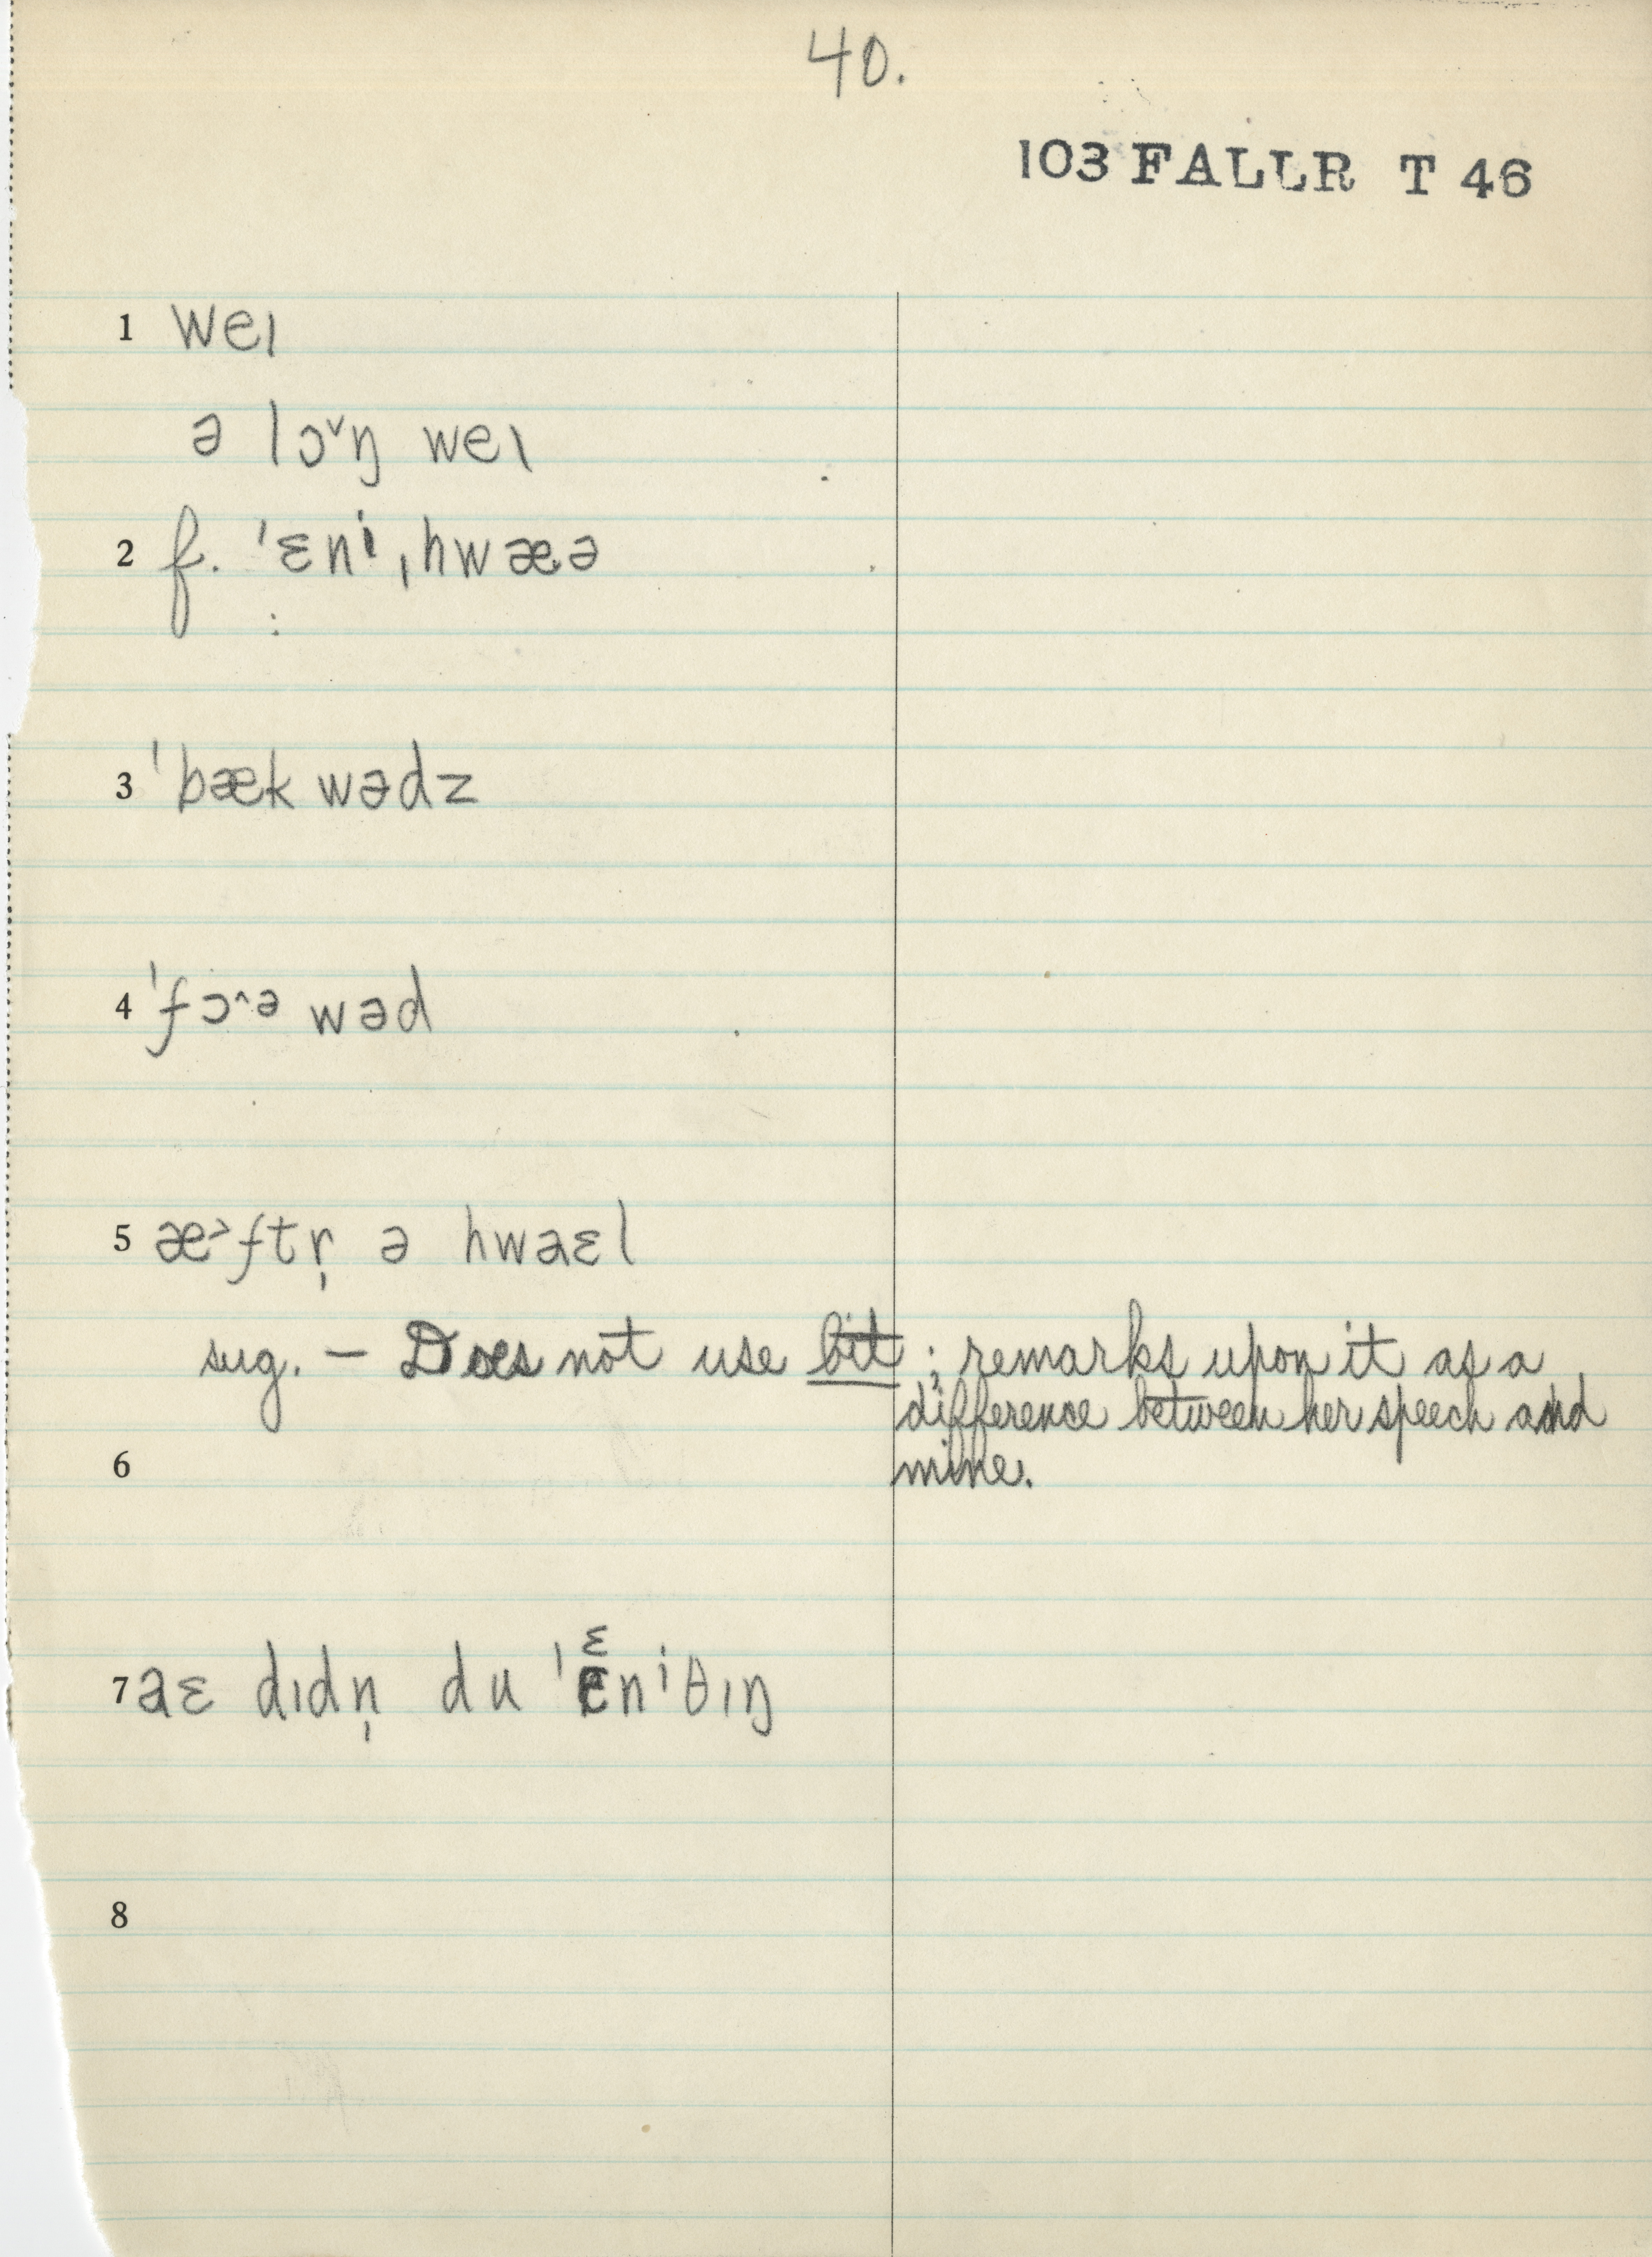 40.
103 FALLR T 46
1 weɪ
ə lɔ˅ŋ weɪ
2 f. ˈɛnⁱˌhwæə
:
3 ˈbæk wədz
4 ˈfɔ˄ə wəd
5 æ˃ftr̩ ə hwaɛl
sug. — Does not use bit; remarks upon it as a
difference between her speech and
6 mine.
7 aɛ dɪdn̩ du ˈɛnⁱθɪŋ
8